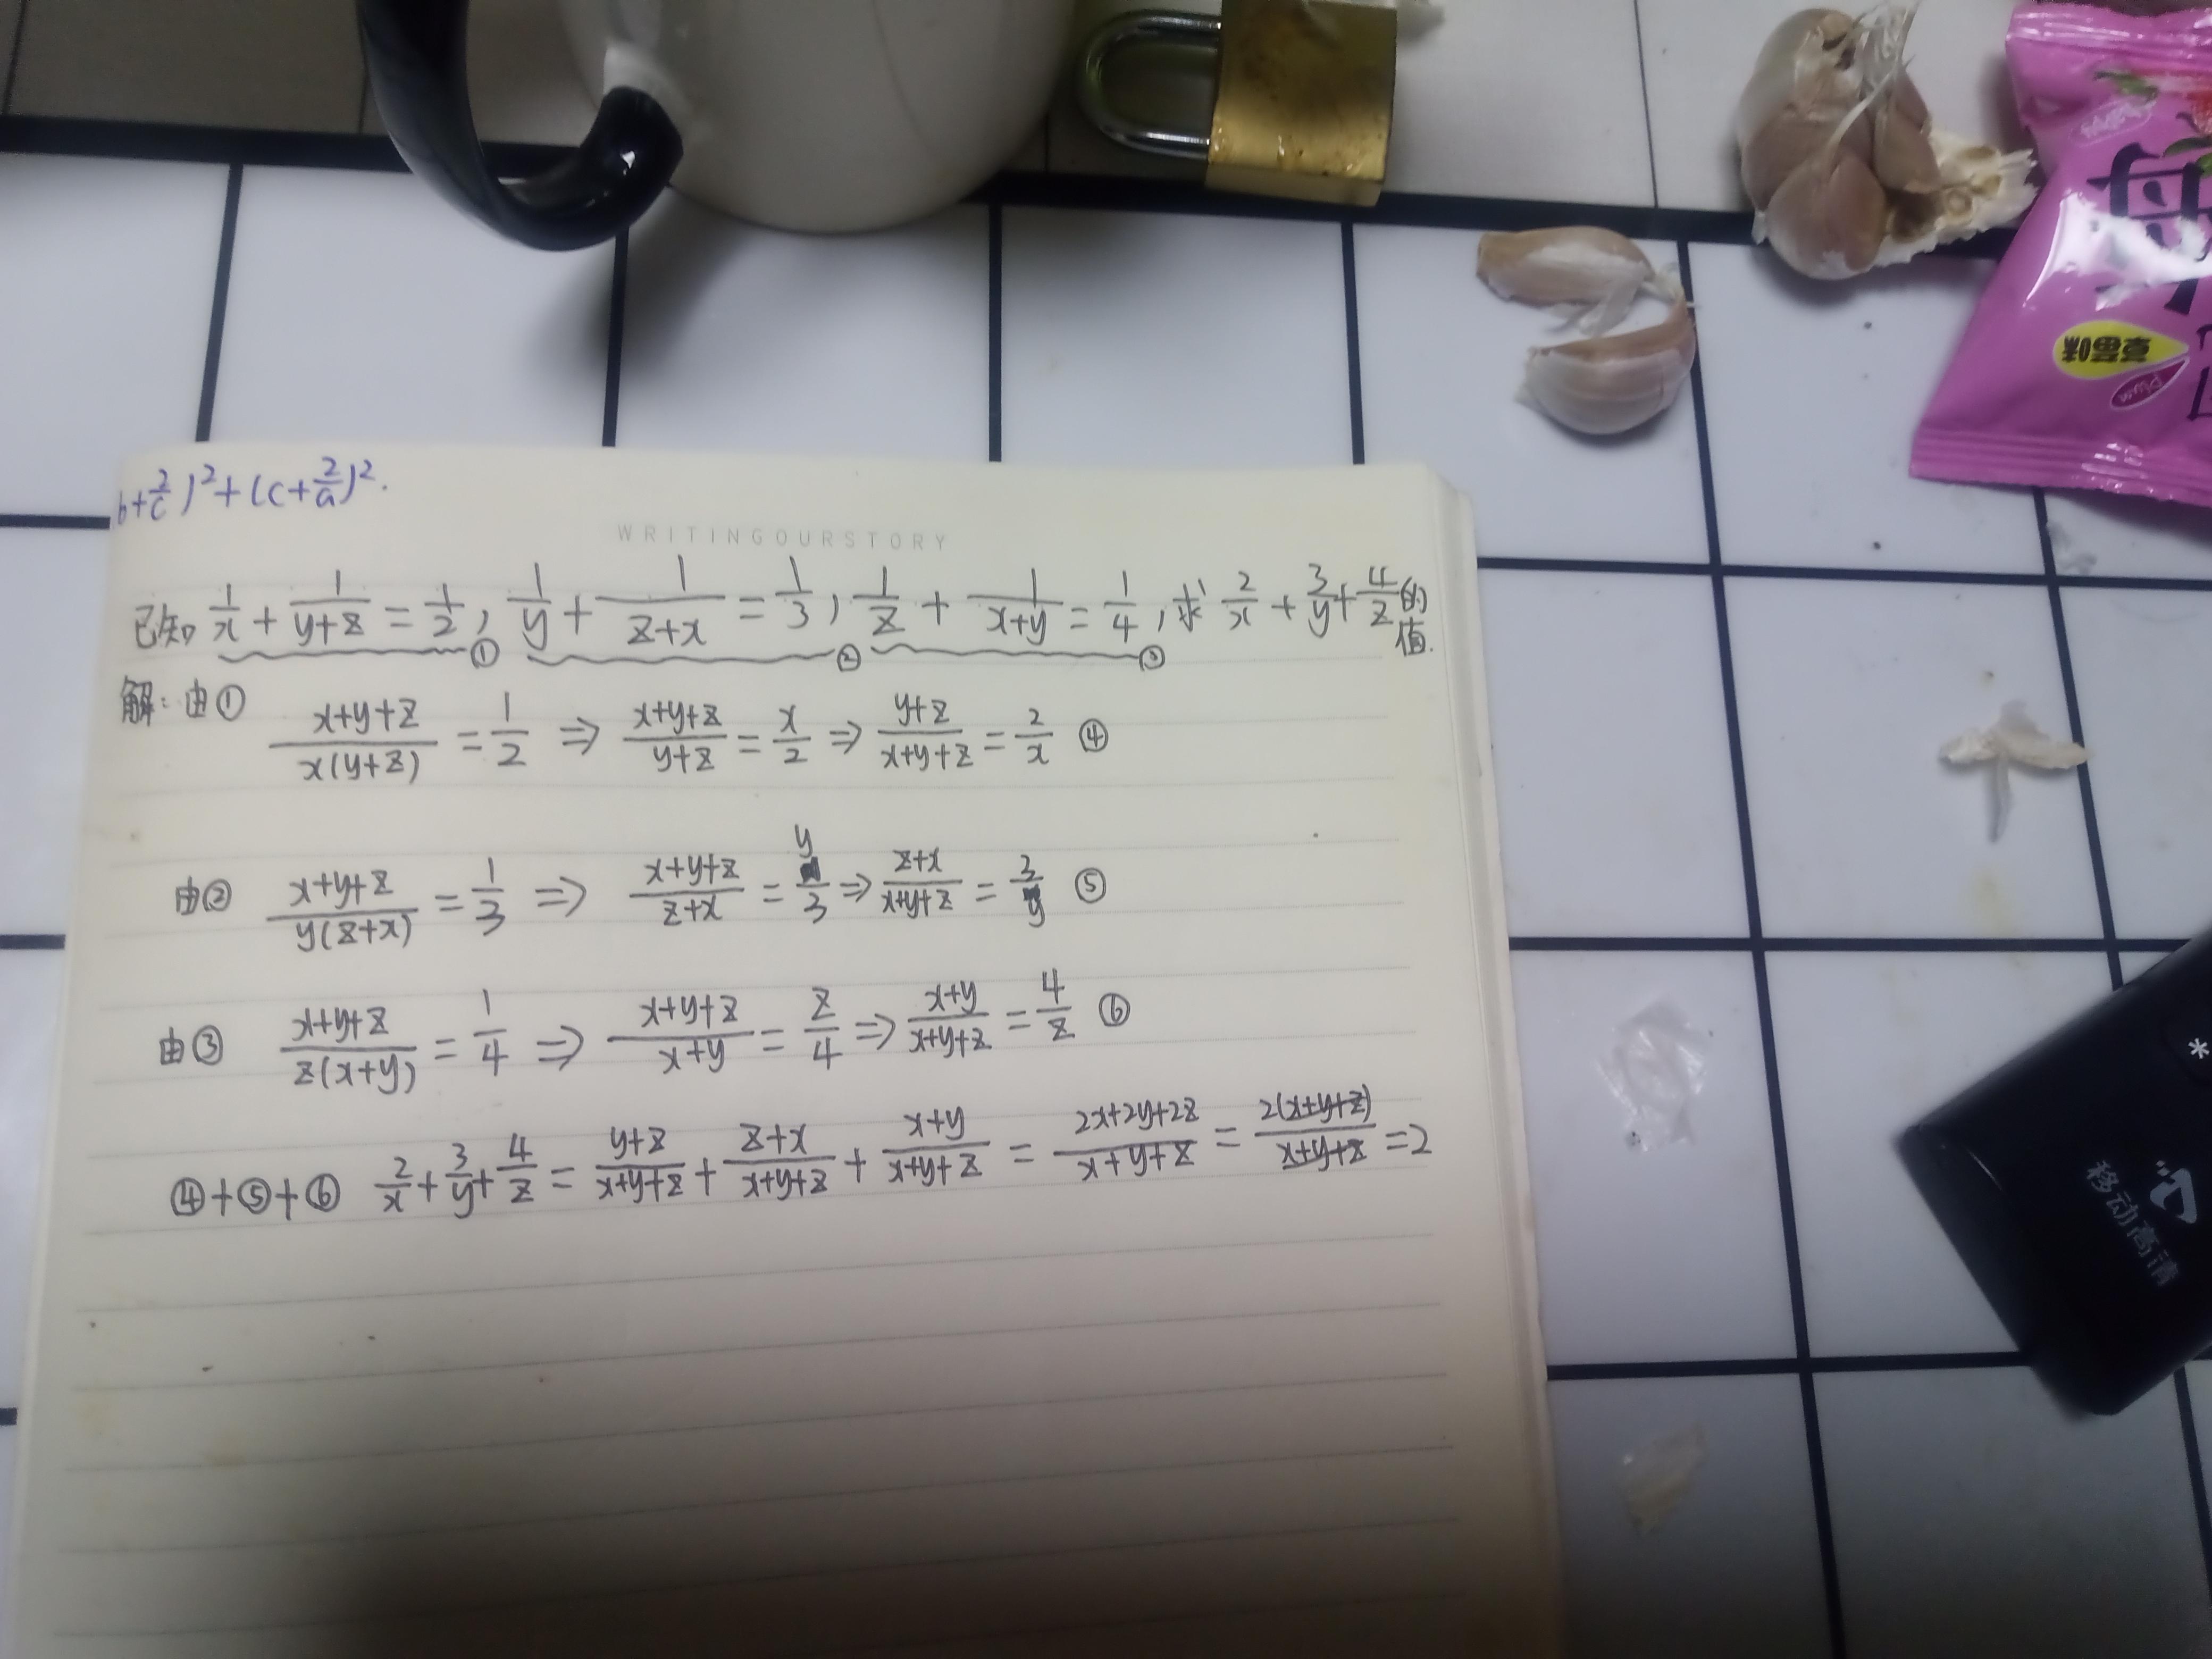 b+2/c)²+(c+2/a)².
WRITINGOURSTORY
已知 1/x + 1/(y+z) = 1/2, 1/y + 1/(z+x) = 1/3, 1/z + 1/(x+y) = 1/4, 求 2/x + 3/y + 4/z 的值.
① ② ③
解: 由① (x+y+z)/(x(y+z)) = 1/2 ⇒ (x+y+z)/(y+z) = x/2 ⇒ (y+z)/(x+y+z) = 2/x ④
由② (x+y+z)/(y(z+x)) = 1/3 ⇒ (x+y+z)/(z+x) = y/3 ⇒ (z+x)/(x+y+z) = 3/y ⑤
由③ (x+y+z)/(z(x+y)) = 1/4 ⇒ (x+y+z)/(x+y) = z/4 ⇒ (x+y)/(x+y+z) = 4/z ⑥
④+⑤+⑥ 2/x + 3/y + 4/z = (y+z)/(x+y+z) + (z+x)/(x+y+z) + (x+y)/(x+y+z) = (2x+2y+2z)/(x+y+z) = 2(x+y+z)/(x+y+z) = 2
移动高清
*